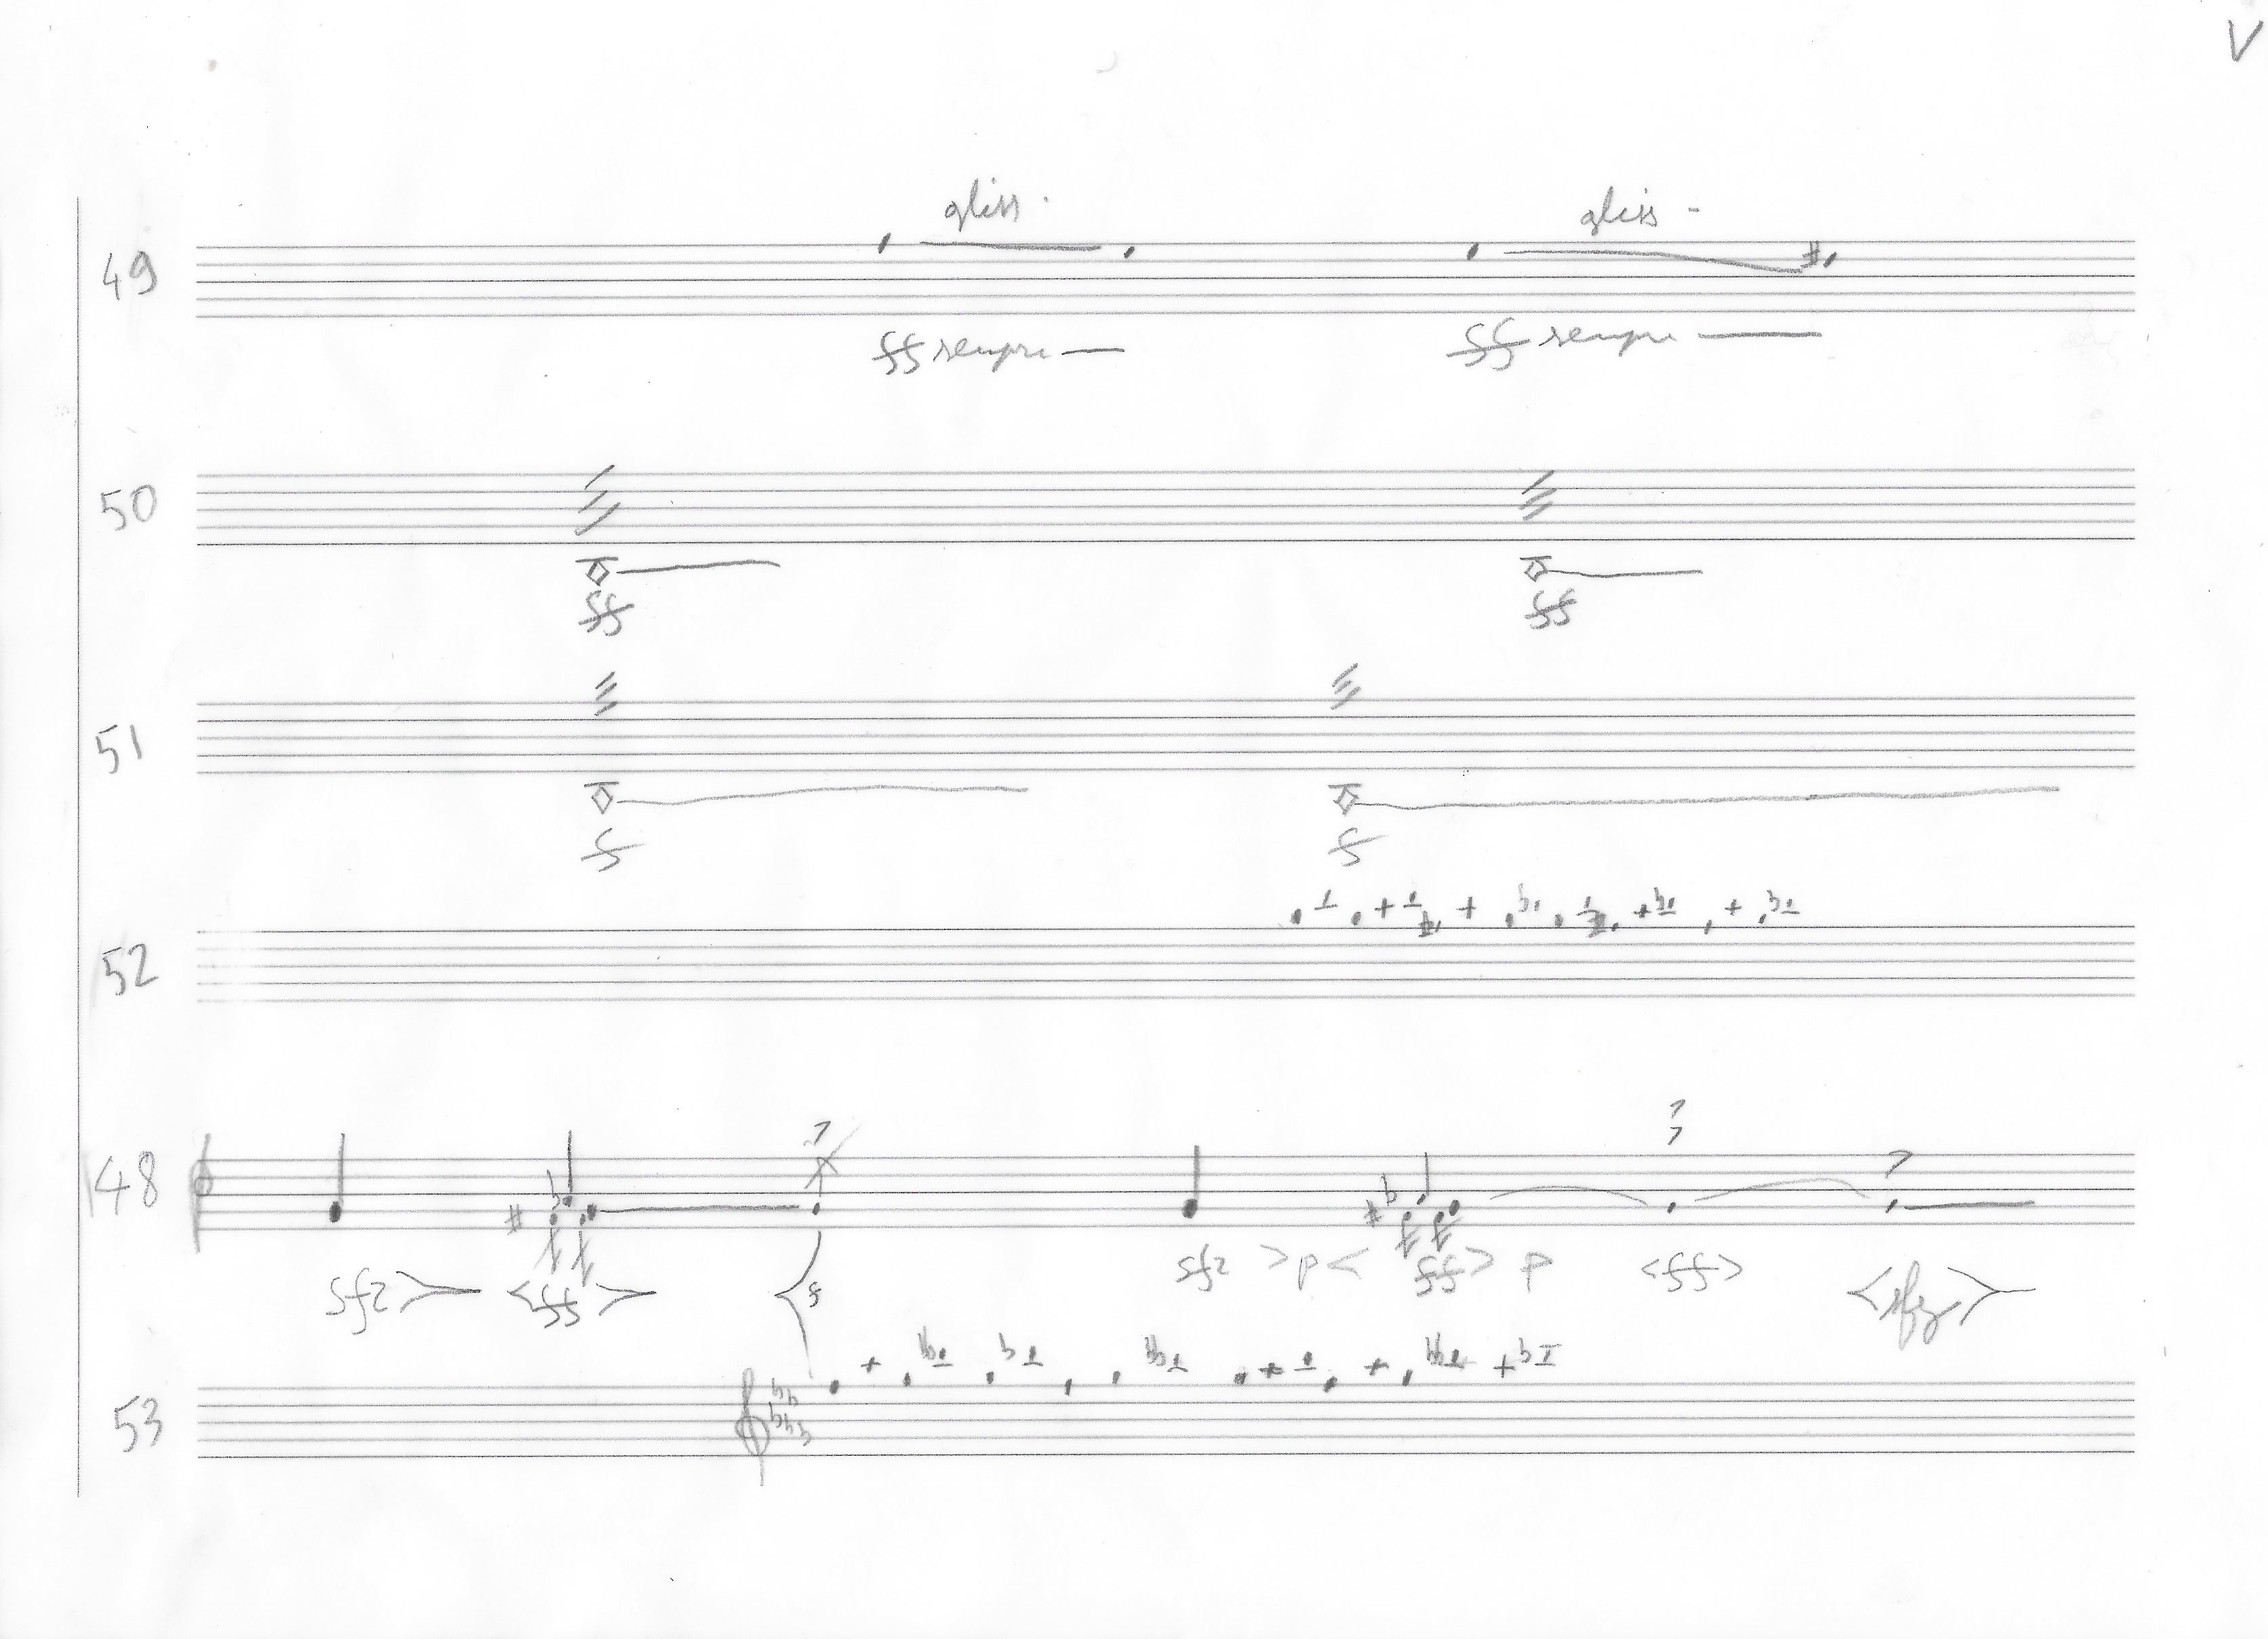 V
gliss. gliss -
49
ff sempre — ff sempre —
50
ff ff
51
f f
52
48
sfz > <ff> f sfz >p< ff> p <ff> <sfz>
53